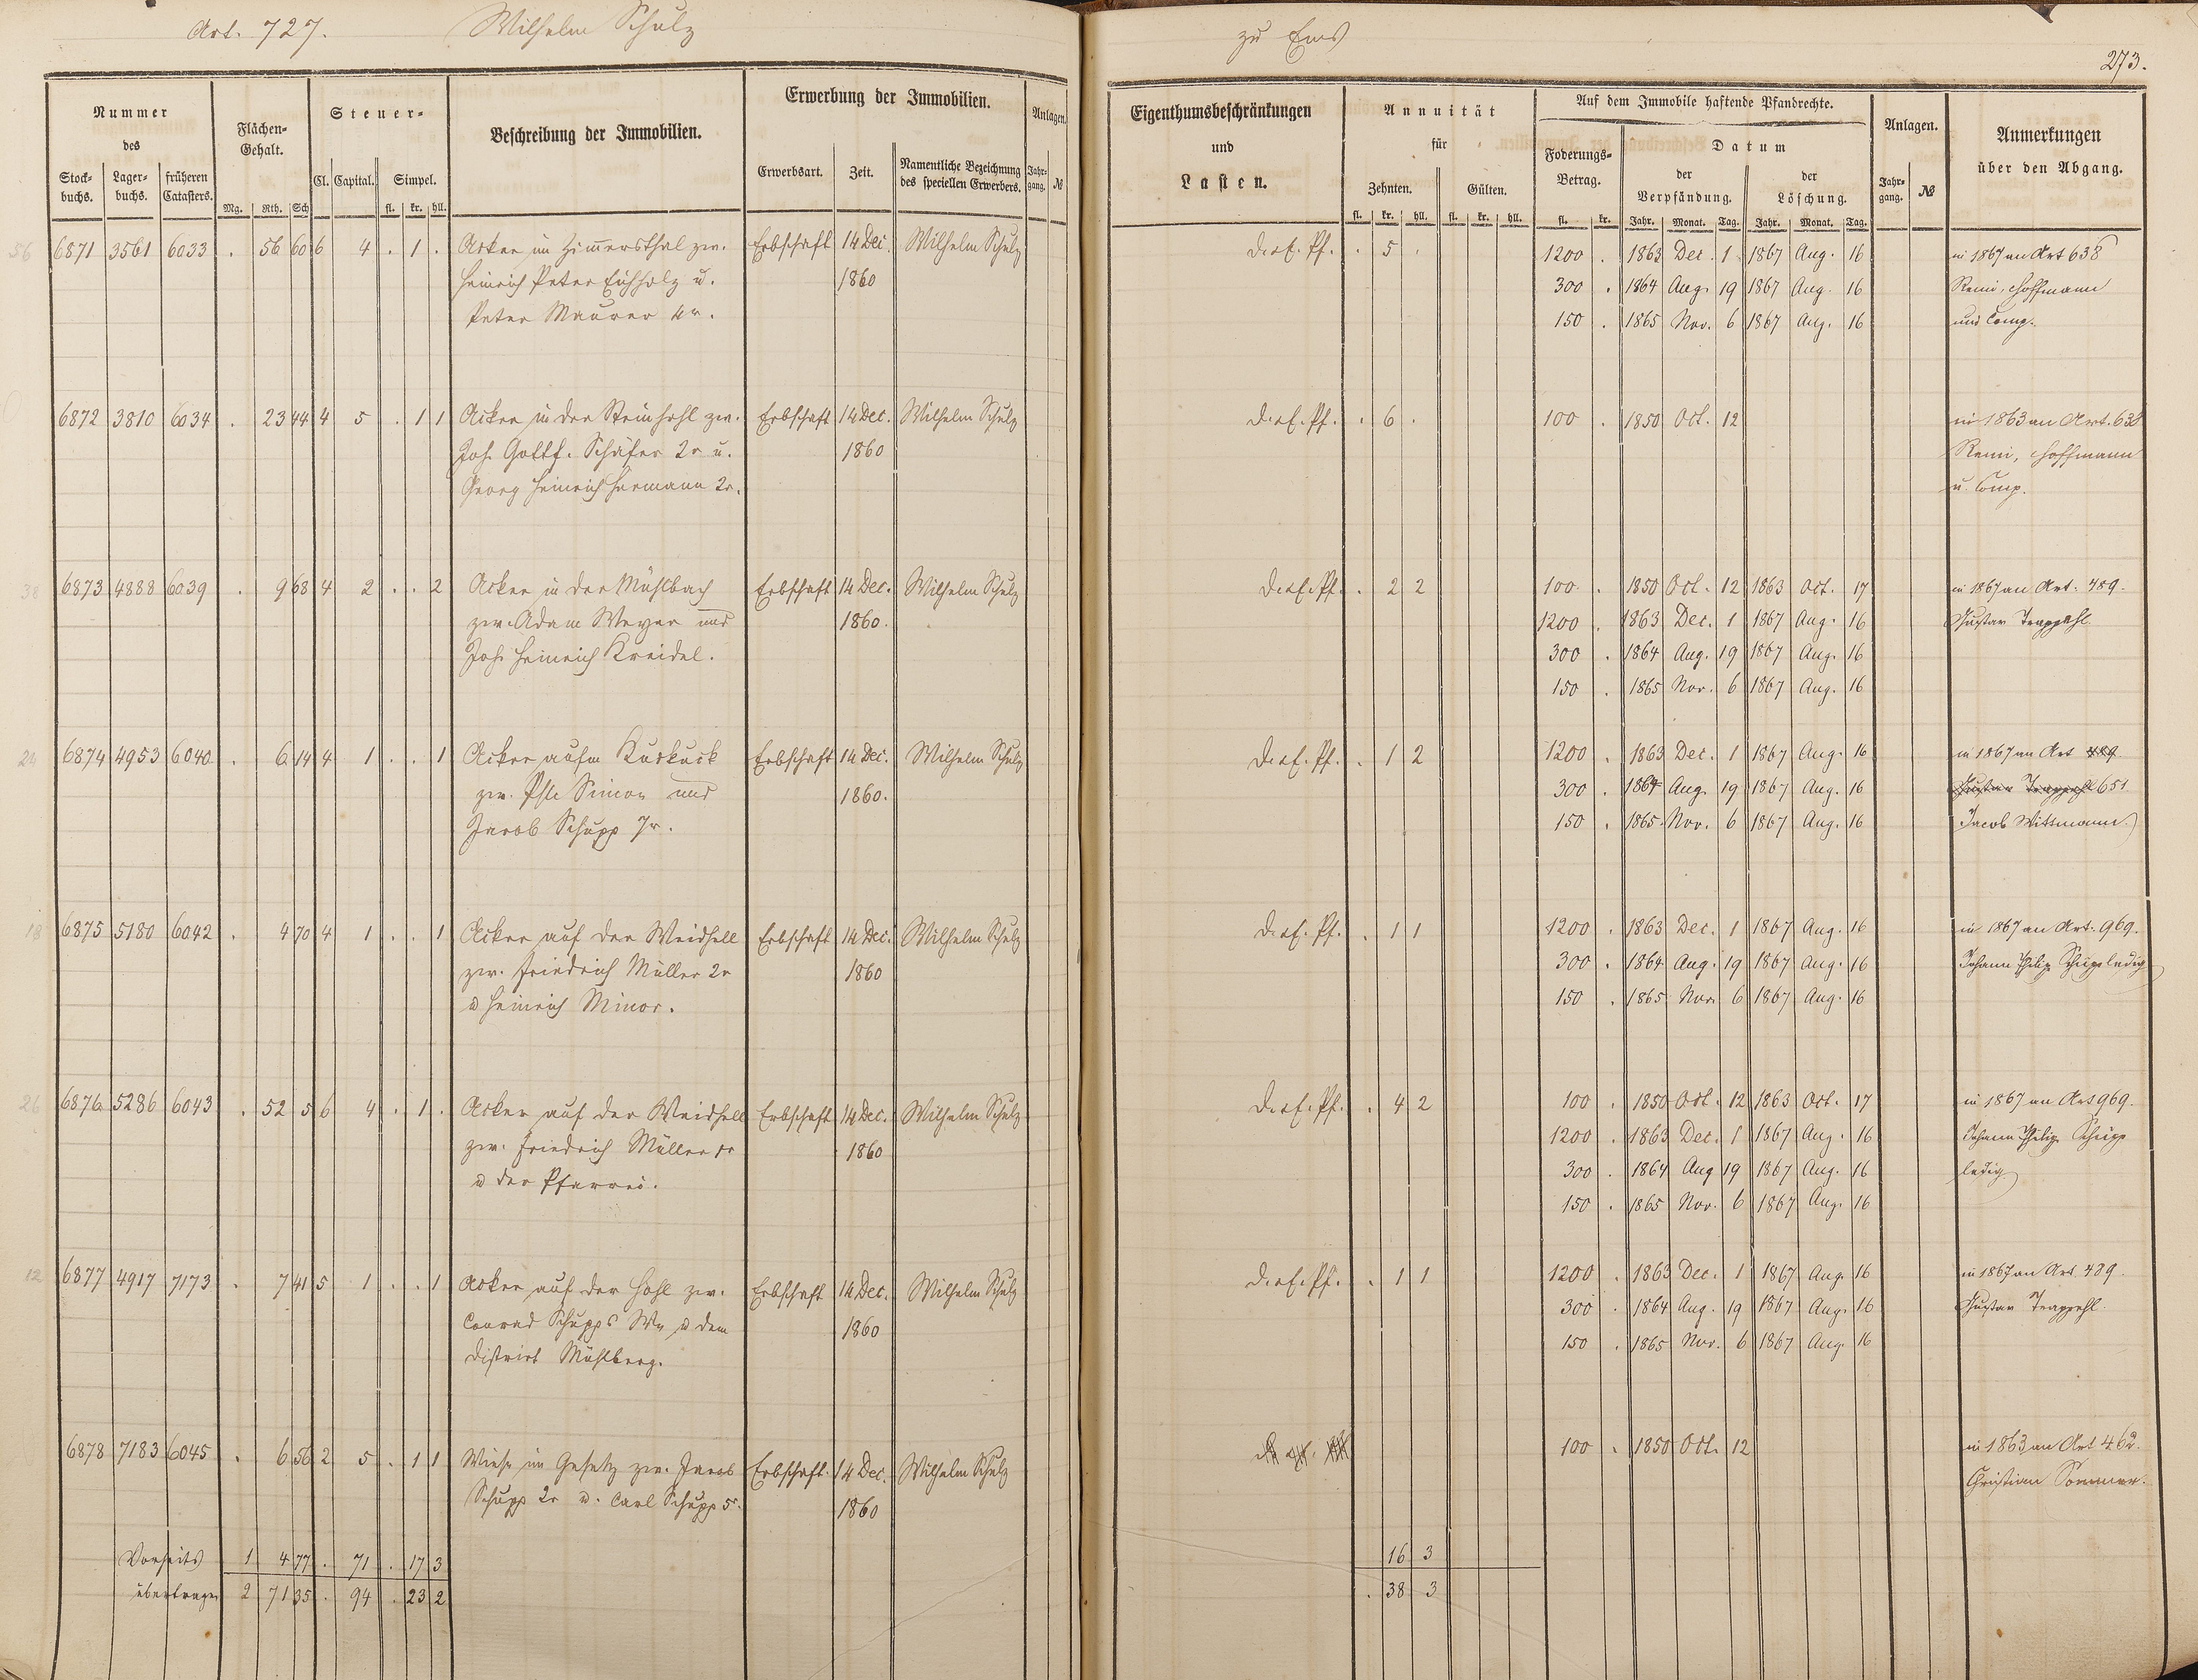 Art. 727. Wilhelm Schulz zu Ems
273.
Nummer des
Stockbuchs. Lagerbuchs. früheren Catasters.
Flächen-Gehalt.
Mg. Rth. Sch
Steuer-
Cl. Capital. Simpel.
fl. kr. hll.
Beschreibung der Immobilien.
Erwerbung der Immobilien.
Erwerbsart. Zeit. Namentliche Bezeichnung des speciellen Erwerbers.
Anlagen.
Jahrgang. №
Eigenthumsbeschränkungen und Lasten.
Annuität für
Zehnten. Gülten.
fl. kr. hll. fl. kr. hll.
Auf dem Immobile haftende Pfandrechte.
Foderungs-Betrag. Datum der Verpfändung. der Löschung.
fl. kr. Jahr. Monat. Tag. Jahr. Monat. Tag.
Anlagen.
Jahrgang. №
Anmerkungen über den Abgang.
56 6871 3561 6033 . 56 60 6 4 . 1 . Acker im Zimersthal zw. Erbschaft 14 Dec. Wilhelm Schulz D. ef. Pf. . 5 . 1200 . 1863 Dec. 1 1867 Aug. 16 in 1867 an Art 638
Heinrich Peter Eichholz u. 1860 300 . 1864 Aug. 19 1867 Aug. 16 Remi, Hoffmann
Peter Maurer 4r. 150 . 1865 Nov. 6 1867 Aug. 16 und Comp.
6872 3810 6034 . 23 44 4 5 . 1 1 Acker in der Steinhohl zw. Erbschaft 14 Dec. Wilhelm Schulz D. ef. Pf. . 6 . 100 . 1850 Oct. 12 in 1863 an Art. 638
Joh. Gottf. Schäfer 2r u. 1860 Remi, Hoffmann
Georg Heinrich Hermann 2r. u. Comp.
38 6873 4888 6039 . 9 68 4 2 . . 2 Acker in der Mühlbach Erbschaft 14 Dec. Wilhelm Schulz D. ef. Pf. . 2 2 100 . 1850 Oct. 12 1863 Oct. 17 in 1867 an Art. 489.
zw. Adam Weyer und 1860. 1200 . 1863 Dec. 1 1867 Aug. 16 Gustav Trappehl
Joh. Heinrich Kreidel. 300 . 1864 Aug. 19 1867 Aug. 16
150 . 1865 Nov. 6 1867 Aug. 16
24 6874 4953 6040 . 6 14 4 1 . . 1 Acker aufm Kuckuck Erbschaft 14 Dec. Wilhelm Schulz D. ef. Pf. . 1 2 1200 . 1863 Dec. 1 1867 Aug. 16 in 1867 an Art 489.
zw. Simon und 1860. 300 . 1864 Aug. 19 1867 Aug. 16 Gustav Trappehl 651
Jacob Schupp 7r. 150 . 1865 Nov. 6 1867 Aug. 16 Jacob Wittmann
18 6875 5180 6042 . 4 70 4 1 . . 1 Acker auf der Weidhell Erbschaft 14 Dec. Wilhelm Schulz D. ef. Pf. . 1 1 1200 . 1863 Dec. 1 1867 Aug. 16 in 1867 an Art. 969.
zw. Friedrich Müller 2r 1860 300 . 1864 Aug. 19 1867 Aug. 16 Johann Philip Schupp ledig
u Heinrich Minor. 150 . 1865 Nov. 6 1867 Aug. 16
26 6876 5286 6043 . 52 5 6 4 . 1 . Acker auf der Weidhell Erbschaft 14 Dec. Wilhelm Schulz D. ef. Pf. . 4 2 100 . 1850 Oct. 12 1863 Oct. 17 in 1867 an Art 969.
zw. Friedrich Müller 1r 1860 1200 . 1863 Dec. 1 1867 Aug. 16 Johann Philip Schupp
u der Pfarrei. 300 . 1864 Aug 19 1867 Aug. 16 ledig
150 . 1865 Nov. 6 1867 Aug. 16
12 6877 4917 7173 . 7 41 5 1 . . 1 Acker auf der Hohl zw. Erbschaft 14 Dec. Wilhelm Schulz D. ef. Pf. . 1 1 1200 . 1863 Dec. 1 1867 Aug. 16 in 1867 an Art. 489.
Conrad Schupps Ww u dem 1860 300 . 1864 Aug. 19 1867 Aug. 16 Gustav Trappehl.
District Mühlberg. 150 . 1865 Nov. 6 1867 Aug. 16
6878 7183 6045 . 6 56 2 5 . 1 1 Wiese im Gesetz zw. Jacob Erbschaft 14 Dec. Wilhelm Schulz 100 . 1850 Oct. 12 in 1863 an Art 462.
Schupp 2r u. Carl Schupp 5r. 1860 Christian Sommer.
Vorseits 1 4 77 . 71 . 17 3 16 3
übertragen 2 71 35 . 94 . 23 2 . 38 3